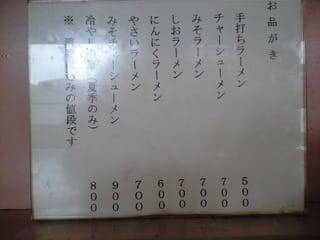 お品がき
手打ちラーメン 500
チャーシューメン 700
みそラーメン 700
しおラーメン 700
にんにくラーメン 600
やさいラーメン 700
みそチャーシューメン 900
冷や(夏季のみ) 800
※ みの値段です